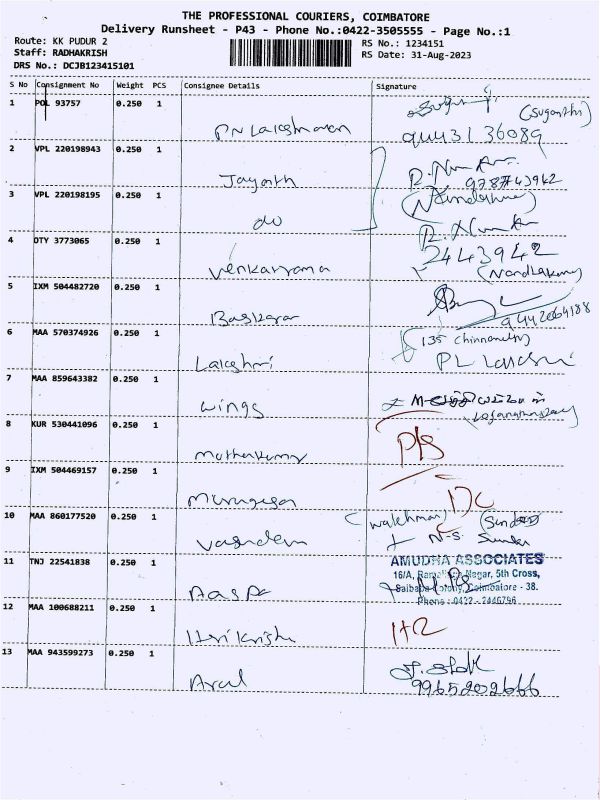 THE PROFESSIONAL COURIERS, COIMBATORE
Delivery Runsheet - P43 - Phone No.:0422-3505555 - Page No.:1
Route: KK PUDUR 2
RS No.: 1234151
Staff: RADHAKRISH
RS Date: 31-Aug-2023
DRS No.: DCJB123415101
S No Consignment No Weight PCS Consignee Details Signature
1 POL 93757 0.250 1
(Suganthi)
2 VPL 220198943 0.250 1
Jayanth
3 VPL 220198195 0.250 1
do
4 DTY 3773065 0.250 1
Venkatrama
2443942
5 IXM 504482720 0.250 1
Baskaran
9442064188
6 MAA 570374926 0.250 1
135
Lakshmi
PL Lakshmi
7 MAA 859643382 0.250 1
wings
8 KUR 530441096 0.250 1
Muthukumar
P/S
9 IXM 504469157 0.250 1
Murugesan
DC
10 MAA 860177520 0.250 1
(watchman)
Vasudevan
N.S.
11 TNJ 22541838 0.250 1
AMUDHA ASSOCIATES
16/A, Nagar, 5th Cross,
Saibaba Colony, Coimbatore - 38.
Phone : 0422 - 2446796
12 MAA 100688211 0.250 1
Hari Krishn
13 MAA 943599273 0.250 1
Arul
9965202666